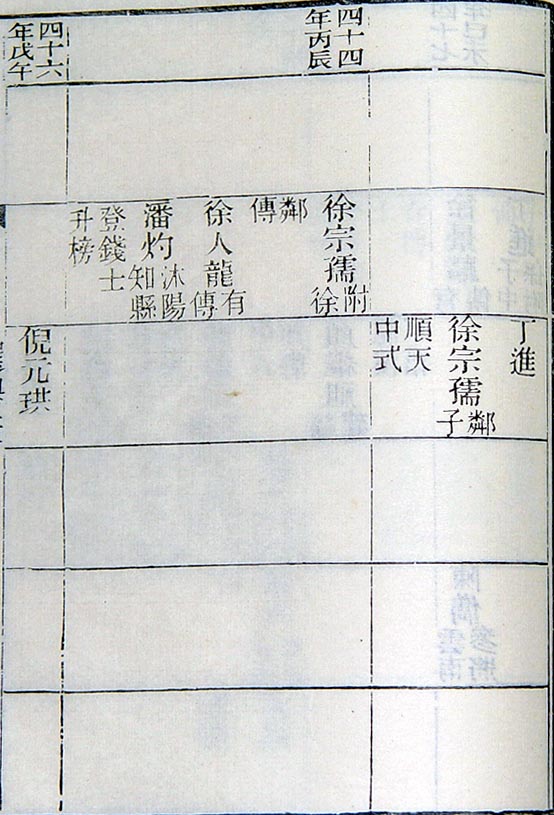 丁進
徐宗孺 鄰子
順天
中式
四十四
年丙辰
徐宗孺 附徐
鄰
傳
徐人龍 有傳
潘灼 沐陽知縣
登錢士
升榜
四十六
年戊午
倪元珙